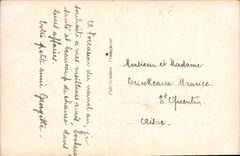 A l'occasion du nouvel an, je
souhaite à mes meilleurs amis, bonheur
santé et beaucoup de chance dans
leurs affaires.
Votre petite amie Georgette.
Monsieur et Madame
Maurice.
St Quentin.
Aisne.